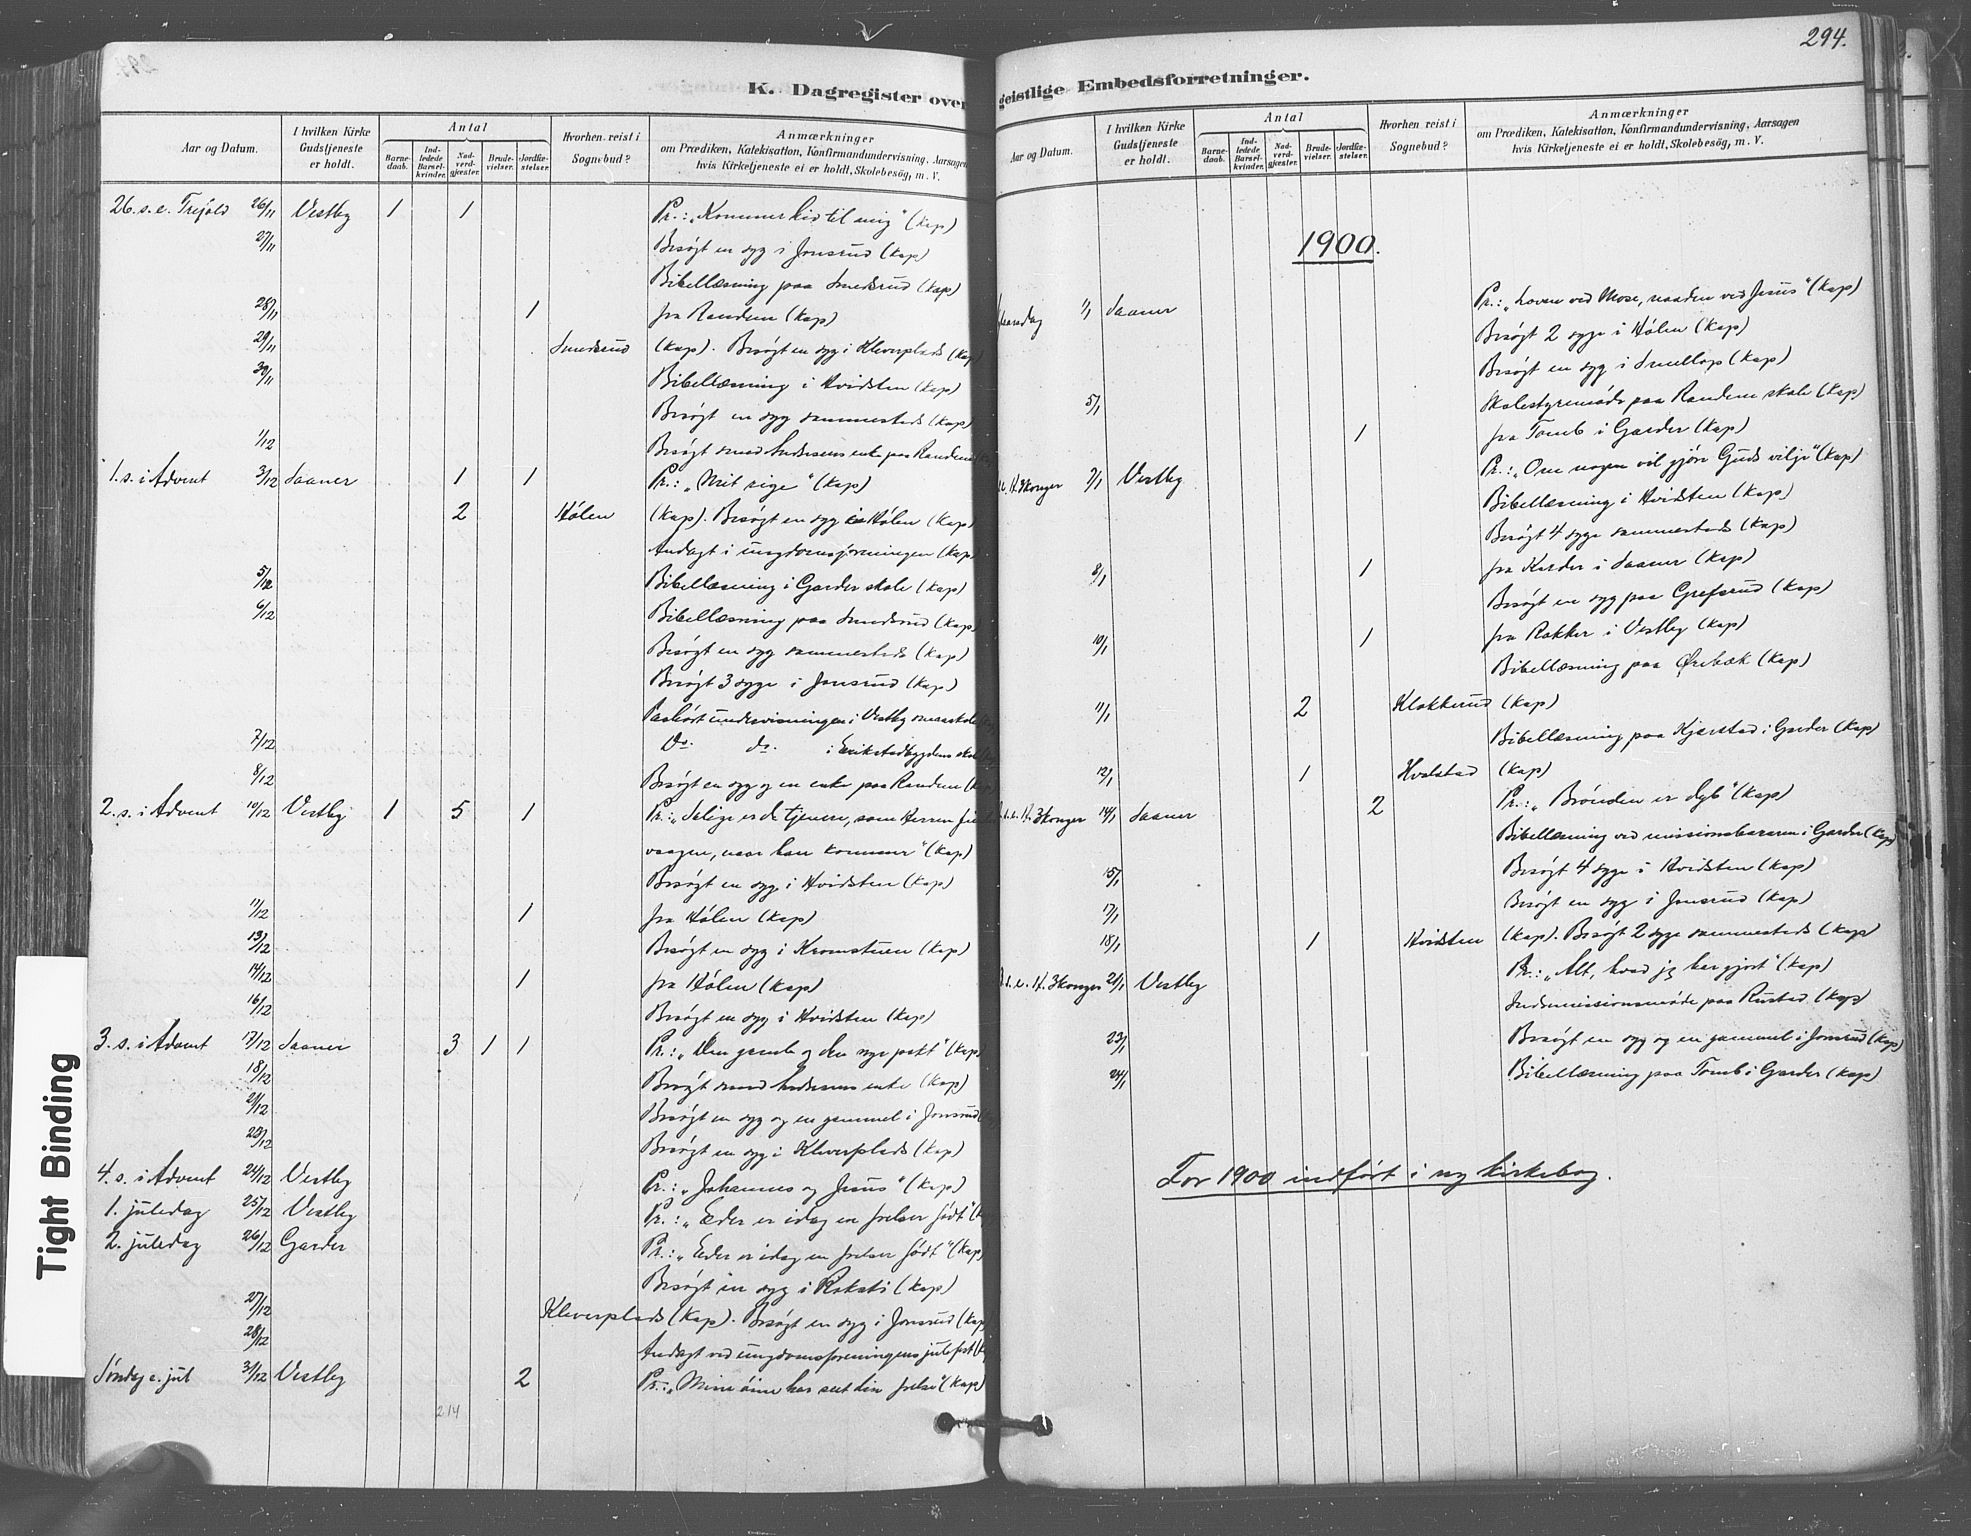 294.
K. Dagregister over geistlige Embedsforretninger.
Aar og Datum. I hvilken Kirke Gudstjeneste er holdt. Antal Barnedaab. Indledede Barselkvinder. Nadverdgjester. Brudevielser. Jordfæstelser. Hvorhen reist i Sognebud? Anmærkninger om Prædiken, Katekisation, Konfirmandundervisning, Aarsagen hvis Kirketjeneste ei er holdt, Skolebesög, m. V.
26. s. e. Trefold 26/11 Vestby 1 1 Pr.: „Kommer hid til mig" (Kap)
27/11 Besøgt en syg i Jonsrud (Kap)
Bibellæsning paa Smedsrud (Kap)
28/11 1 fra Randem (Kap)
29/11 Smedsrud (Kap). Besøgt en syg i Kleverplads (Kap)
30/11 Bibellæsning i Hvidsten (Kap)
Besøgt en syg sammesteds (Kap)
1/12 Besøgt smed Andersens enke paa Randem
1. s. i Advent 3/12 Saaner 1 1 Pr.: „Mit rige" (Kap)
2 Hølen (Kap). Besøgt en syg i Hølen (Kap)
Andagt i ungdomsforeningen (Kap)
5/12 Bibellæsning i Garder skole (Kap)
6/12 Bibellæsning paa Smedsrud (Kap)
Besøgt en syg sammesteds (Kap)
Besøgt 3 syge i Jonsrud (Kap)
Paahørt undervisningen i Vestby smaaskole
7/12 Do. do. i Erikstadbygdens skole
8/12 Besøgt en syg og en enke paa Randem (Kap)
2. s. i Advent 10/12 Vestby 1 5 1 Pr.: „Salige er de tjenere, som Herren finder
vaagne, naar han kommer" (Kap)
Besøgt en syg i Hvidsten (Kap)
11/12 1 fra Hølen (Kap)
13/12 Besøgt en syg i Kromstuen (Kap)
14/12 1 fra Hølen (Kap)
16/12 Besøgt en syg i Hvidsten (Kap)
3. s. i Advent 17/12 Saaner 3 1 1 Pr.: „Den gamle og den nye pakt" (Kap)
18/12 Besøgt smed Andersens enke (Kap)
21/12 Besøgt en syg og en gammel i Jonsrud
23/12 Besøgt en syg i Kleverplads (Kap)
4. s. i Advent 24/12 Vestby Pr.: „Johannes og Jesus" (Kap)
1. juledag 25/12 Vestby Pr.: „Eder er idag en frelser født"
2. juledag 26/12 Garder Pr.: „Eder er idag en frelser født" (Kap)
Besøgt en syg i (Kap)
27/12 Kleverplads (Kap). Besøgt en syg i Jonsrud (Kap)
28/12 Andagt ved ungdomsforeningens julefest
Søndag e. jul 31/12 Vestby 2 Pr.: „Mine øine har seet din frelse" (Kap)
214
Aar og Datum. I hvilken Kirke Gudstjeneste er holdt. Antal Barnedaab. Indledede Barselkvinder. Nadverdgjester. Brudevielser. Jordfæstelser. Hvorhen reist i Sognebud? Anmærkninger om Prædiken, Katekisation, Konfirmandundervisning, Aarsagen hvis Kirketjeneste ei er holdt, Skolebesög, m. V.
1900.
1/1 Saaner Pr.: „Loven ved Mose, naaden ved Jesus" (Kap)
Besøgt 2 syge i Hølen (Kap)
Besøgt en syg i Smellop (Kap)
5/1 Skolestyremøde paa Randem skole (Kap)
1 fra Tomb i Garder (Kap)
e. H. 3konger 7/1 Vestby Pr.: „Om nogen vil gjøre Guds vilje" (Kap)
Bibellæsning i Hvidsten (Kap)
Besøgt 4 syge sammesteds (Kap)
8/1 1 fra Korder i Saaner (Kap)
Besøgt en syg paa Grefsrud (Kap)
10/1 1 fra Rokker i Vestby (Kap)
Bibellæsning paa Ørebæk (Kap)
11/1 2 Klokkerud (Kap)
Bibellæsning paa Kjærstad i Garder (Kap)
12/1 1 Hvalstad (Kap)
s. e. H. 3konger 14/1 Saaner 2 Pr.: „Brønden er dyb" (Kap)
Bibellæsning ved missionsbasaren i Garder (Kap)
15/1 Besøgt 4 syge i Hvidsten (Kap)
17/1 Besøgt en syg i Jonsrud (Kap)
18/1 1 Hvidsten (Kap). Besøgt 2 syge sammesteds (Kap)
s. e. H. 3konger 21/1 Vestby Pr.: „Alt, hvad jeg har gjort" (Kap)
Indremissionsmøde paa Rustad (Kap)
23/1 Besøgt en syg og en gammel i Jonsrud (Kap)
24/1 Bibellæsning paa Tomb i Garder (Kap)
For 1900 indført i ny kirkebog.
Tight Binding